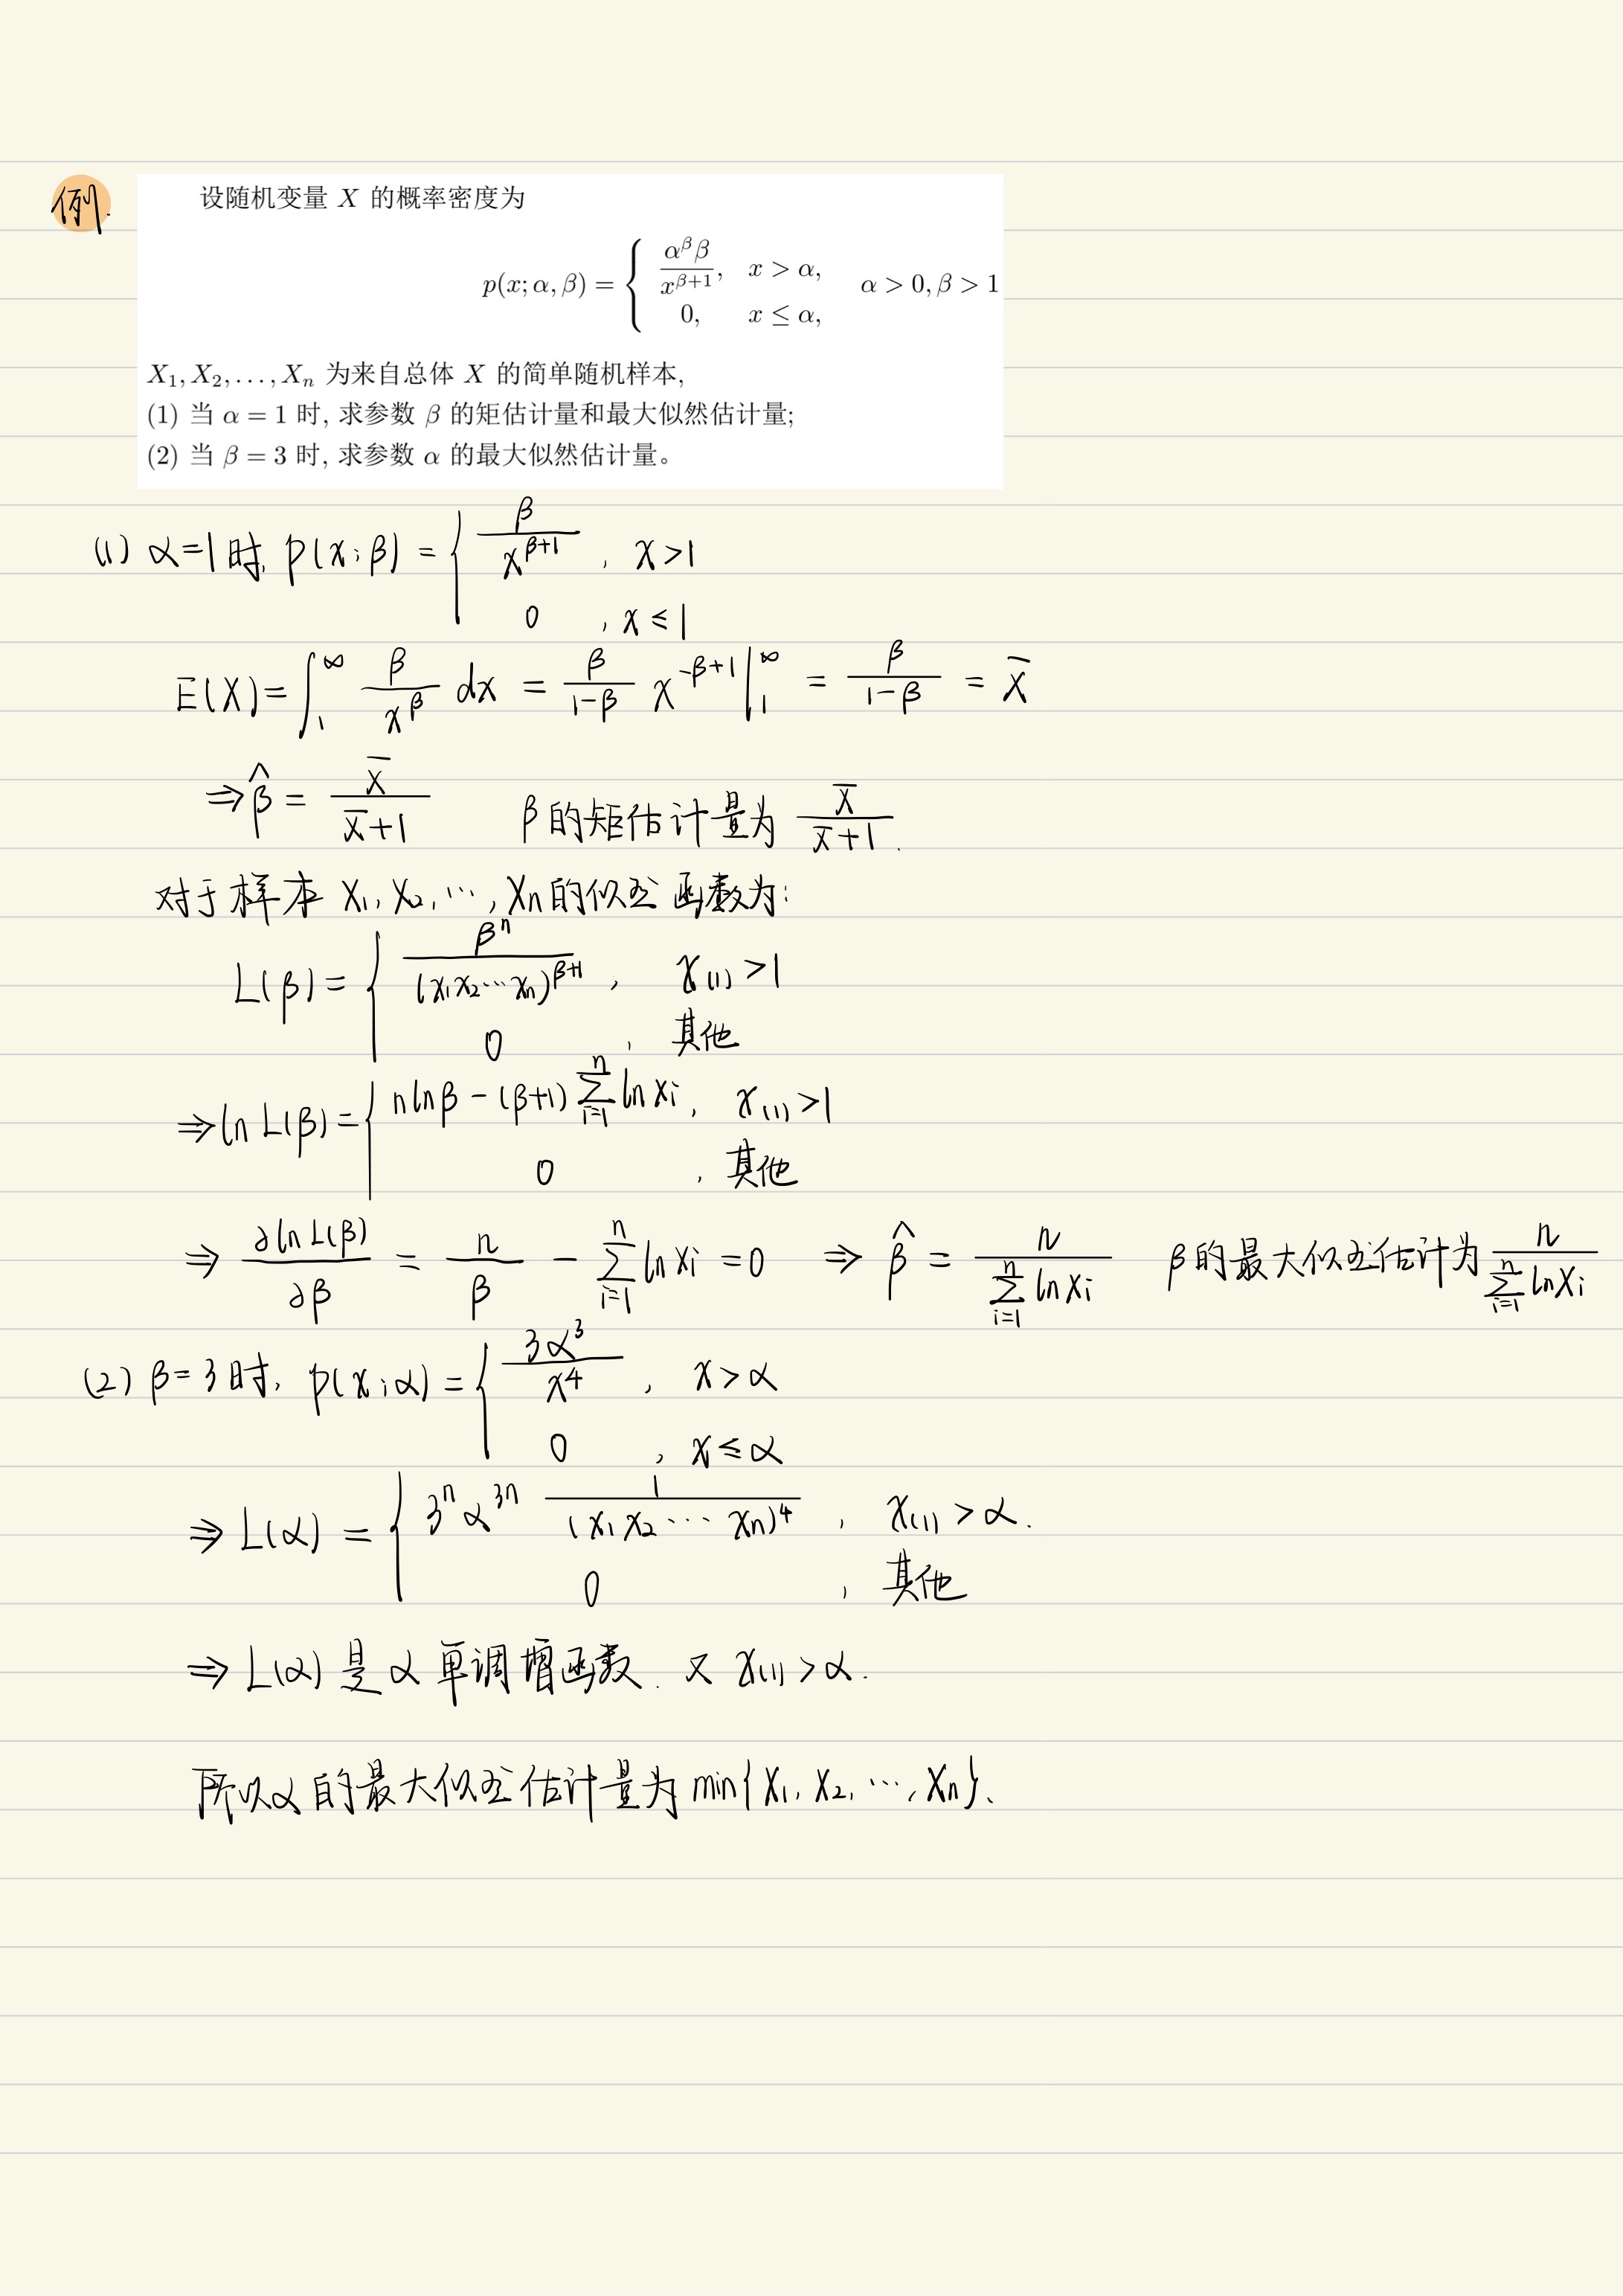 例.
设随机变量 X 的概率密度为
p(x; α, β) = { α^β β / x^{β+1}, x > α,
0, x ≤ α, α > 0, β > 1
X₁, X₂, …, Xₙ 为来自总体 X 的简单随机样本,
(1) 当 α = 1 时, 求参数 β 的矩估计量和最大似然估计量;
(2) 当 β = 3 时, 求参数 α 的最大似然估计量。
(1) α=1时, p(x; β) = { β / x^{β+1}, x>1
0, x ≤ 1
E(X) = ∫₁^∞ β / x^β dx = β/(1-β) x^{-β+1} |₁^∞ = β/(1-β) = X̄
⇒ β̂ = X̄/(X̄+1) β的矩估计量为 X̄/(X̄+1).
对于样本 X₁, X₂, …, Xₙ的似然函数为:
L(β) = { βⁿ / (x₁x₂⋯xₙ)^{β+1}, x₍₁₎ >1
0, 其他
⇒ ln L(β) = { n ln β - (β+1) ∑_{i=1}^{n} ln xᵢ, x₍₁₎ >1
0, 其他
⇒ ∂ln L(β)/∂β = n/β - ∑_{i=1}^{n} ln xᵢ = 0 ⇒ β̂ = n / ∑_{i=1}^{n} ln xᵢ β的最大似然估计为 n / ∑_{i=1}^{n} ln Xᵢ
(2) β=3时, p(x; α) = { 3α³ / x⁴, x > α
0, x ≤ α
⇒ L(α) = { 3ⁿ α^{3n} 1 / (x₁x₂⋯xₙ)⁴, x₍₁₎ > α.
0, 其他
⇒ L(α) 是 α 单调增函数. 又 x₍₁₎ > α.
所以α的最大似然估计量为 min{X₁, X₂, …, Xₙ}.